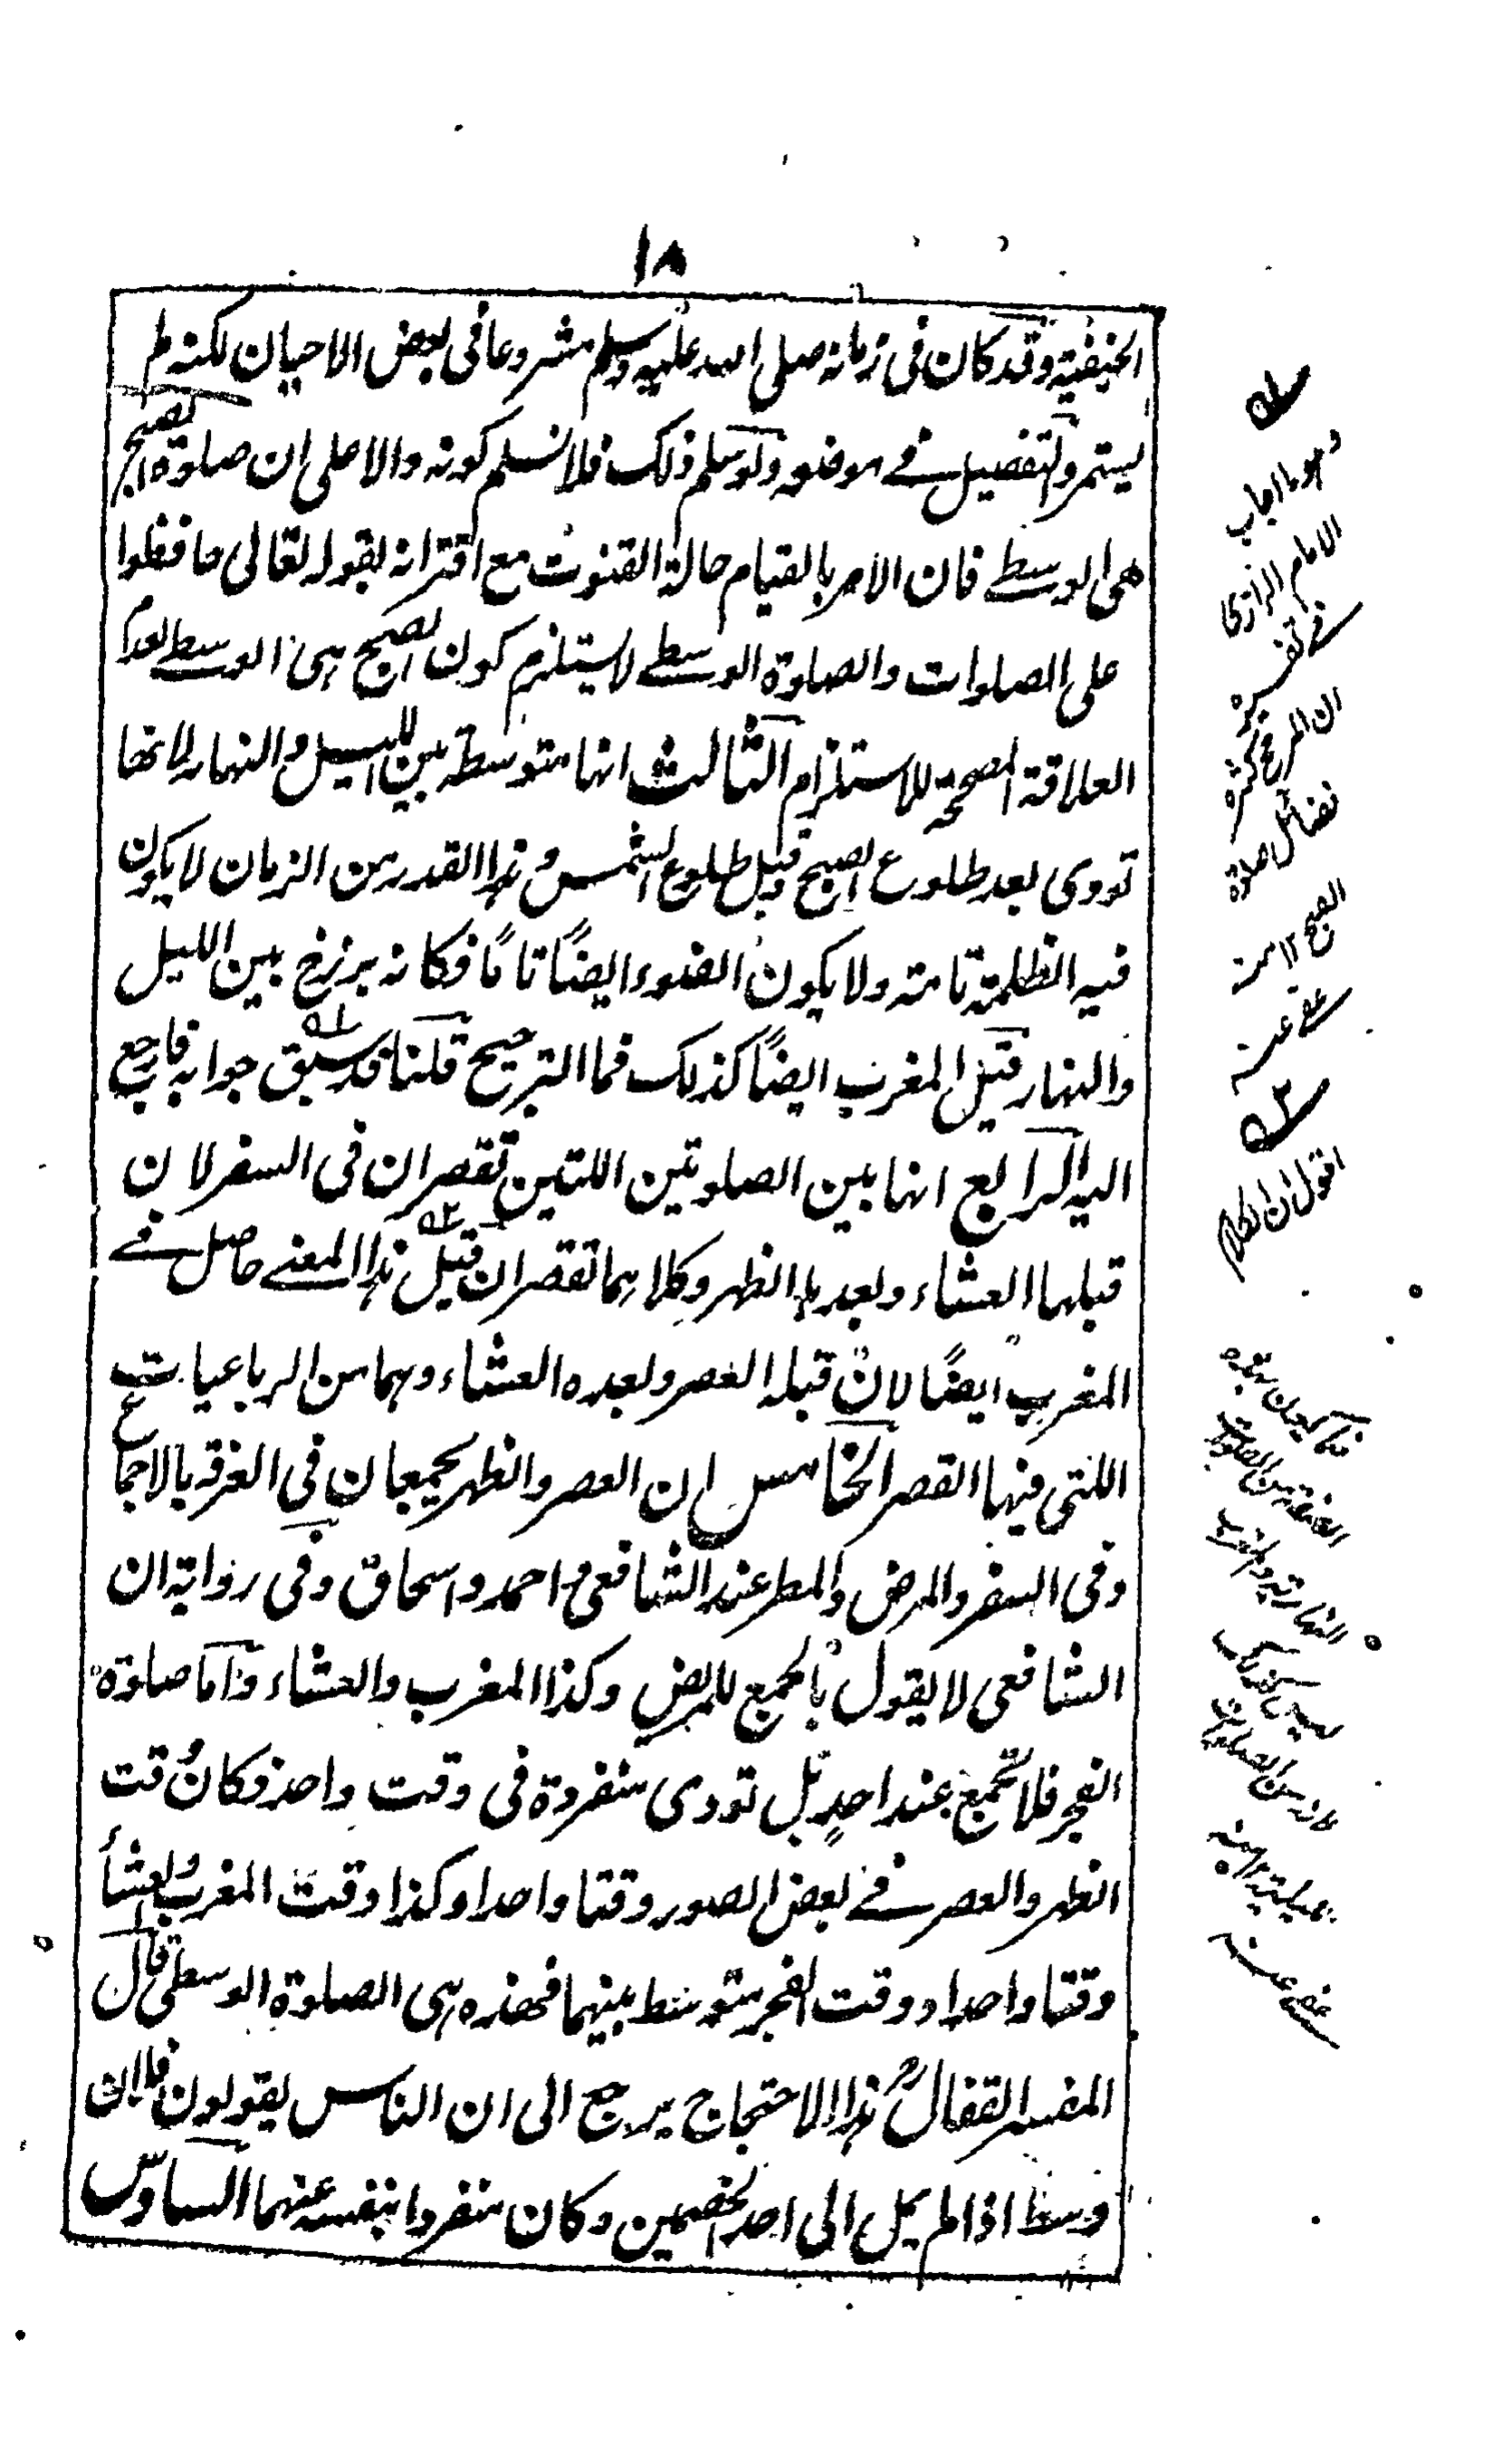 ١٨
الحنفية وقد كان فى زمانه صلى الله عليه وسلم مشروعا فى بعض الاحيان لكنه لم
يستمر والتفصيل فے موضعه ولو سلم ذلك فلا نسلم كونه والا على ان صلوة الصبح
هى الوسطے فان الامر بالقيام حالة القنوت مع اقترانه بقوله تعالى حافظوا
على الصلوات والصلوة الوسطے لا يستلزم كون الصبح هى الوسطے لعدم
العلاقة المصححة للاستلزام الثالث انها متوسطة بين الليل والنهار لانها
تودى بعد طلوع الصبح وقبل طلوع الشمس وهذا القدر من الزمان لا يكون
فيه الظلمة تامة ولا يكون الضوء ايضًا تامًا فكانه برزخ بين الليل
والنهار قيل المغرب ايضًا كذلك فما الترجيح قلنا قد سبق جوابه فارجع
اليه الرابع انها بين الصلوتين اللتين تقصران فى السفر لان
قبلها العشاء وبعدها الظهر وكلاهما تقصران قيل هذا المعنے حاصل فے
المغرب ايضًا لان قبله العصر وبعده العشاء وهما من الرباعيات
اللتى فيها القصر الخامس ان العصر والظهر يجمعان فى العرفة بالاجماع
وفى السفر والمرض والمطر عند الشافعى واحمد واسحاق وفى رواية ان
الشافعى لا يقول بالجمع للمريض وكذا المغرب والعشاء واما صلوة
الفجر فلا تجمع عند احد بل تودى منفردة فى وقت واحد فكان وقت
الظهر والعصر فے بعض الصور وقتا واحدا وكذا وقت المغرب والعشأ
وقتا واحدا ووقت الفجر متوسط بينهما فهذه هى الصلوة الوسطى قال
المفسر القفال هذا الاحتجاج يرجع الى ان الناس يقولون فلان
وسط اذا لم يمل الى احد الخصمين وكان منفردا بنفسه عنهما السادس
الامام الرازى
فے تفسيره
فضائل صلوة
الصبح
اقول ان الكلام